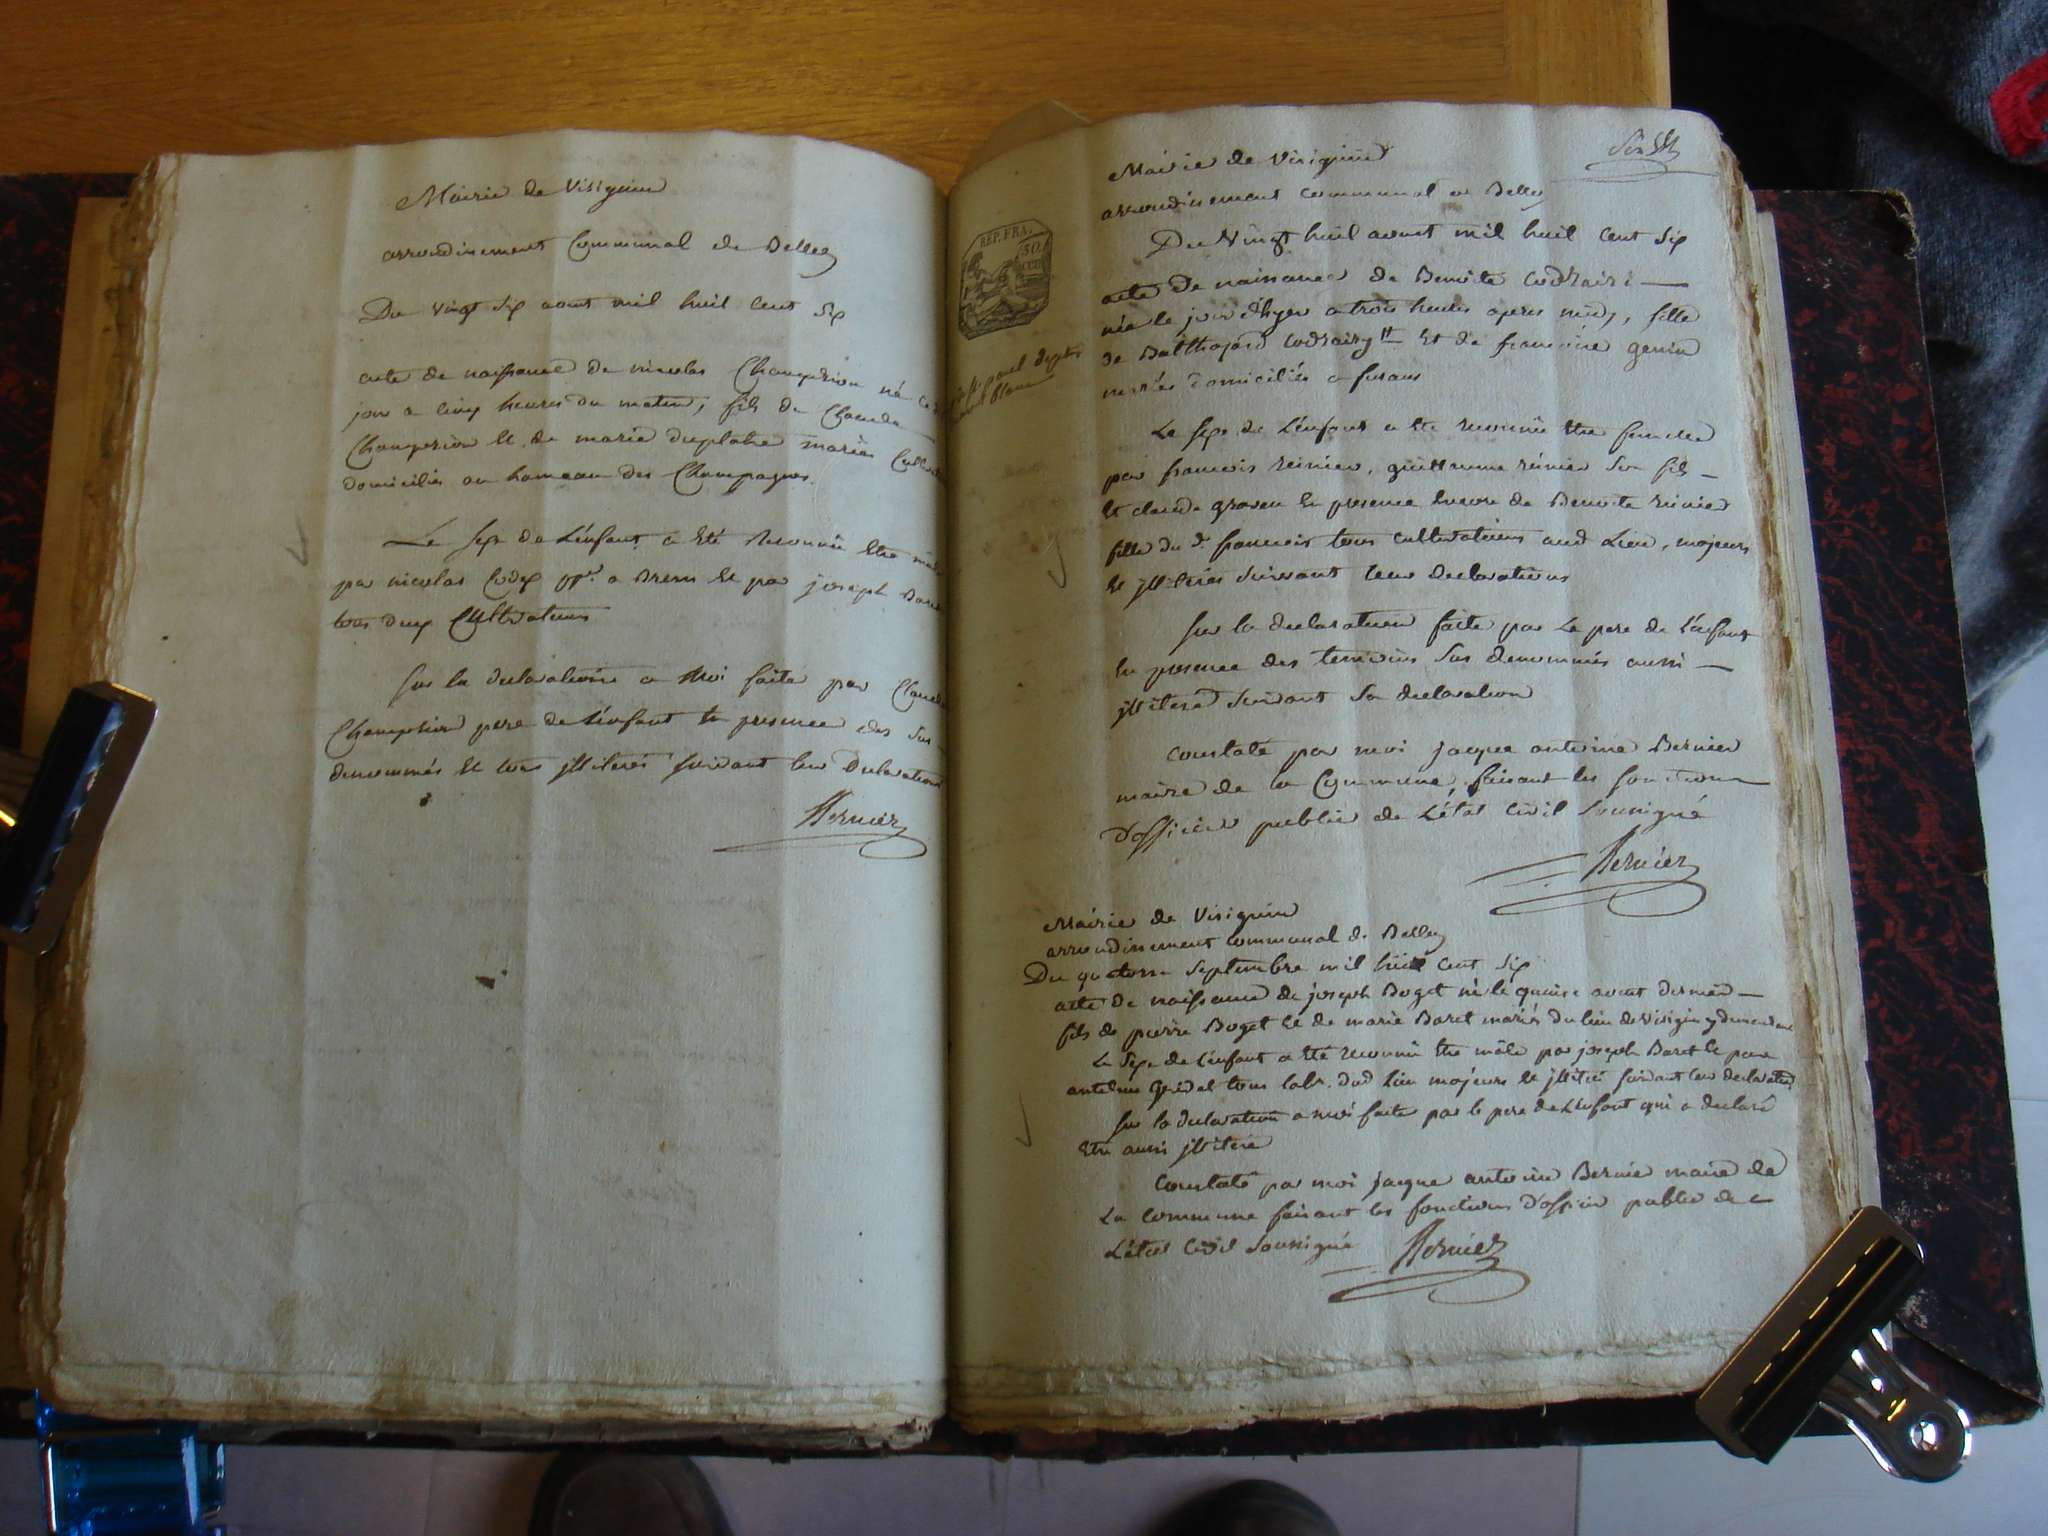 Mairie de Visignin
arrondissement Communal de Belley
Du vingt six aout mil huit cent six
acte de naissance de nicolas Champrion né ce
jour a cinq heures du matin, fils de Claude
Champrion et de marie duplatre mariés
domicilies au hameau des Champagnes.
Le sexe de L'enfant a été reconnu etre
par nicolas Cudex a Brens et par joseph
tous deux Cultivateurs
sur la declaration a Moi faite par
Champrion pere de L'enfant en presence des sus
denommés et tous illiterés suivant leur Declaration
Bernier
Mairie de Visignin
arrondissement communal de Belley
Du Vingt huit aout mil huit cent six
acte de naissance de Benoite
née le jour d'hyer a trois heures apres midy, fille
de Balthazard et de francoise genin
mariés domiciliés a
REP. FRA.
50
Le sexe de L'enfant a ete reconnu etre femelle
par francois reinier, guillaume reinier son fils
et claude en presence encore de Benoite reinier
fille du d. francois tous cultivateurs aud Lieu, majeurs
et illiterés suivant leur declarations
sur la declaration faite par Le pere de L'enfant
en presence des temoins sus denommés aussi
illiteré suivant sa declaration
constaté par moi jacque antoine Bernier
maire de la Commune, faisant les fonctions
d'officier public de L'état civil soussigné
Bernier
Mairie de Visignin
arrondissement communal de Belley
Du quatorze septembre mil huit cent six
acte de naissance de joseph Boget né le quinze aout dernier
fils de pierre Boget et de marie Baret mariés du lieu de Visignin y
Le sexe de L'enfant a été reconnu etre mâle par joseph Baret et par
antelme tous labr. dud Lieu majeurs et suivant leur declaration
sur la declaration a moi faite par le pere de L'enfant qui a declaré
etre aussi illiteré
Constaté par moi jacque antoine Bernier maire de
La commune faisant les fonctions d'officier public de
L'état civil soussigné Bernier